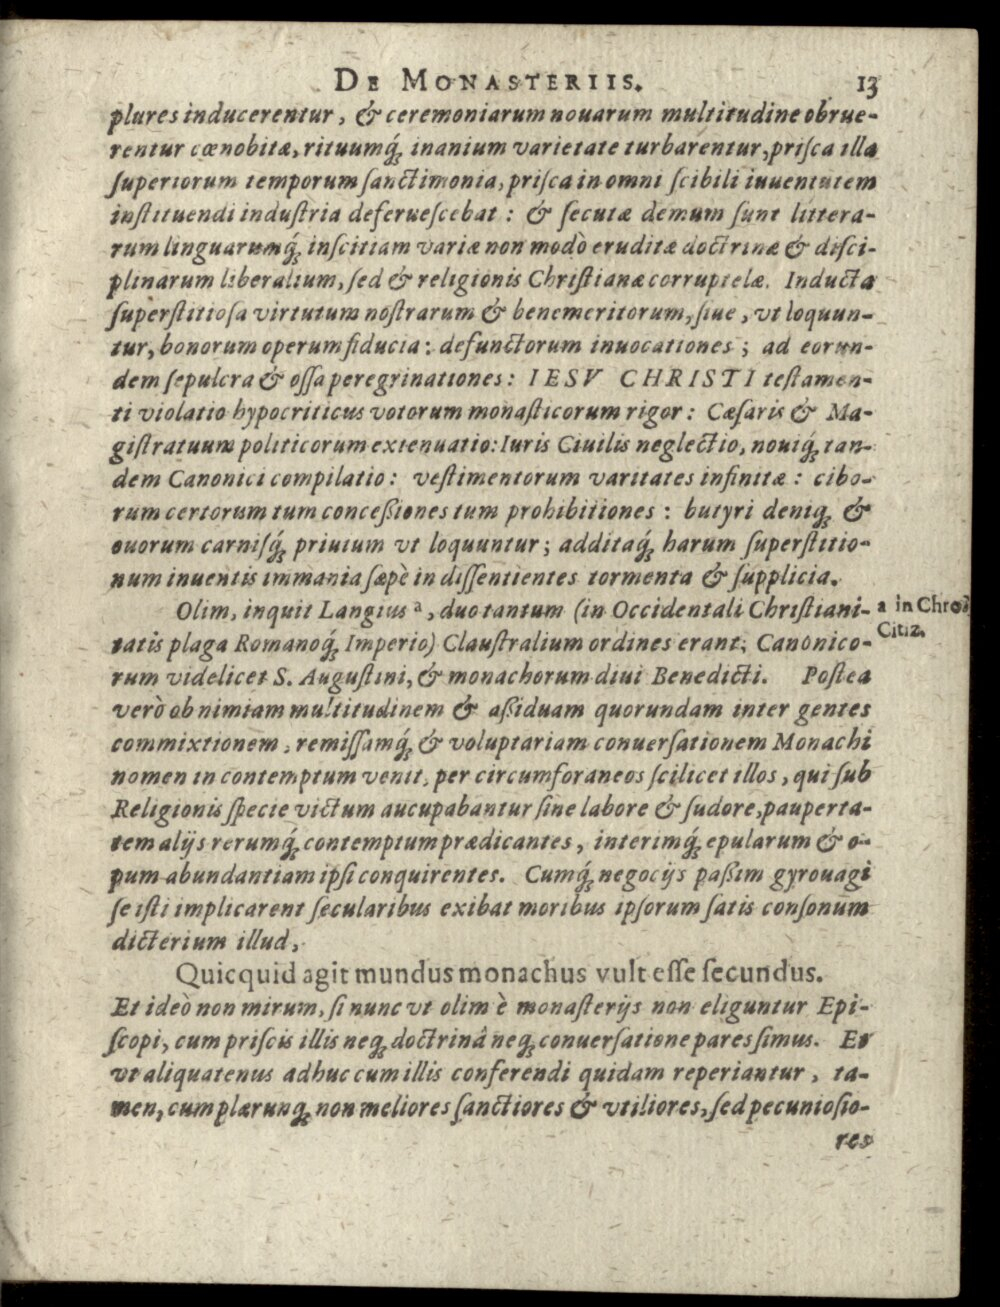 DE MONASTERIIS. 13
plures inducerentur, & ceremoniarum nouarum multitudine obrue-
rentur cœnobitæ, rituumq́; inanium varietate turbarentur, priſca illa
ſuperiorum temporum ſanctimonia, priſca in omni ſcibili iuuentutem
inſtituendi induſtria deferueſcebat : & ſecutæ demum ſunt littera-
rum linguarumq́; inſcitiam variæ non modò eruditæ doctrinæ & diſci-
plinarum liberalium, ſed & religionis Chriſtianæ corruptelæ. Inducta
ſuperſtitioſa virtutum noſtrarum & benemeritorum, ſiue, vt loquun-
tur, bonorum operum fiducia : defunctorum inuocationes ; ad eorun-
dem ſepulcra & oſſa peregrinationes : IESV CHRISTI teſtamen-
ti violatio hypocriticus votorum monaſticorum rigor : Cæſaris & Ma-
giſtratuum politicorum extenuatio : Iuris Ciuilis neglectio, nouiq́; tan-
dem Canonici compilatio : veſtimentorum varitates infinitæ : cibo-
rum certorum tum conceßiones tum prohibitiones : butyri deniq; &
ouorum carniſq́; priuium vt loquuntur ; additaq́; harum ſuperſtitio-
num inuentis immania ſæpè in diſſentientes tormenta & ſupplicia.
Olim, inquit Langius a, duo tantum (in Occidentali Chriſtiani-
tatis plaga Romanoq́; Imperio) Clauſtralium ordines erant, Canonico-
rum videlicet S. Auguſtini, & monachorum diui Benedicti. Poſtea
verò ob nimiam multitudinem & aßiduam quorundam inter gentes
commixtionem, remiſſamq́; & voluptariam conuerſationem Monachi
nomen in contemptum venit, per circumforaneos ſcilicet illos, qui ſub
Religionis ſpecie victum aucupabantur ſine labore & ſudore, pauperta-
tem alijs rerumq́; contemptum prædicantes, interimq́; epularum & o-
pum abundantiam ipſi conquirentes. Cumq́; negocijs paßim gyrouagi
ſe iſti implicarent ſecularibus exibat moribus ipſorum ſatis conſonum
dicterium illud,
Quicquid agit mundus monachus vult eſſe ſecundus.
Et ideò non mirum, ſi nunc vt olim è monaſterijs non eliguntur Epi-
ſcopi, cum priſcis illis neq; doctrinâ neq; conuerſatione pares ſimus. Et
vt aliquatenus adhuc cum illis conferendi quidam reperiantur, ta-
men, cum plærunq; non meliores ſanctiores & vtiliores, ſed pecunioſio-
res
a in Chro
Citiz.